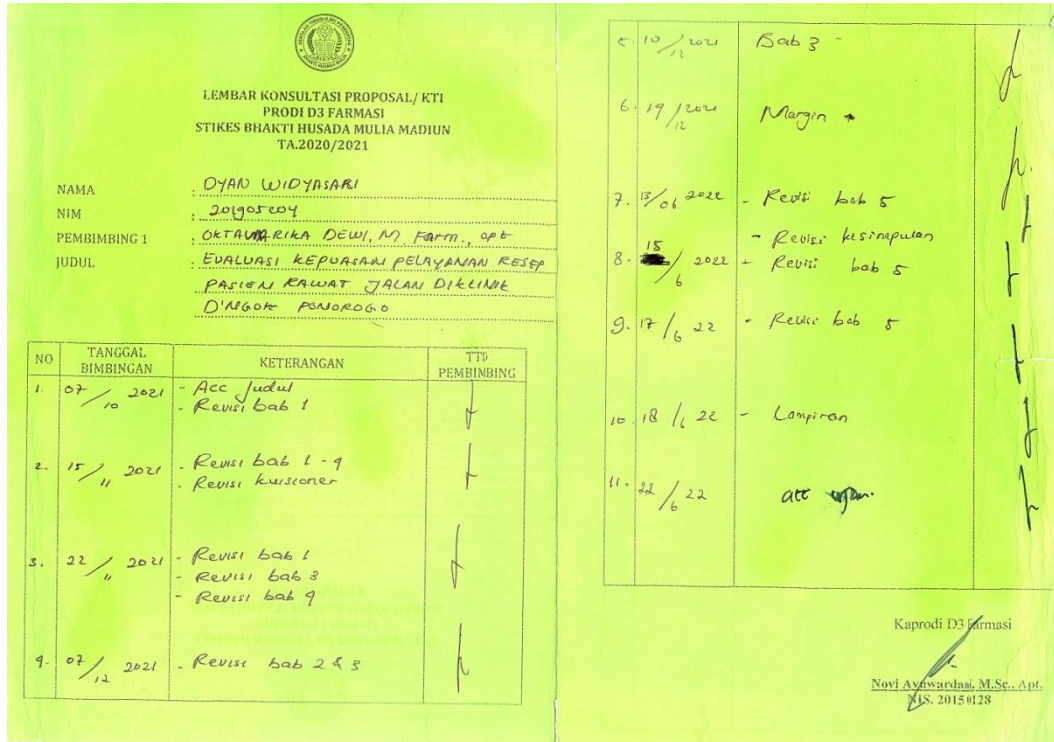 LEMBAR KONSULTASI PROPOSAL/ KTI
PRODI D3 FARMASI
STIKES BHAKTI HUSADA MULIA MADIUN
TA.2020/2021
NAMA : DYAN WIDYASARI
NIM : 201905004
PEMBIMBING 1 : OKTAVIARIKA DEWI, M. Farm., apt
JUDUL : EVALUASI KEPUASAN PELAYANAN RESEP
PASIEN RAWAT JALAN DIKLINIK
D'NGOK PONOROGO
NO TANGGAL BIMBINGAN KETERANGAN TTD PEMBIMBING
1. 07/10 2021 - Acc Judul
- Revisi bab 1
2. 15/11 2021 - Revisi bab 1 - 4
- Revisi kuisioner
3. 22/11 2021 - Revisi bab 1
- Revisi bab 3
- Revisi bab 4
4. 07/12 2021 - Revisi bab 2 & 3
5. 10/12 2021 Bab 3 -
6. 19/12 2021 Margin
7. 13/06 2022 - Revisi bab 5
- Revisi kesimpulan
8. 15/6 2022 - Revisi bab 5
9. 17/6 22 - Revisi bab 5
10. 18/6 22 - Lampiran
11. 22/6 22 acc ujian.
Kaprodi D3 Farmasi
Novi Ayuwardani, M.Sc., Apt.
NIS. 20150128